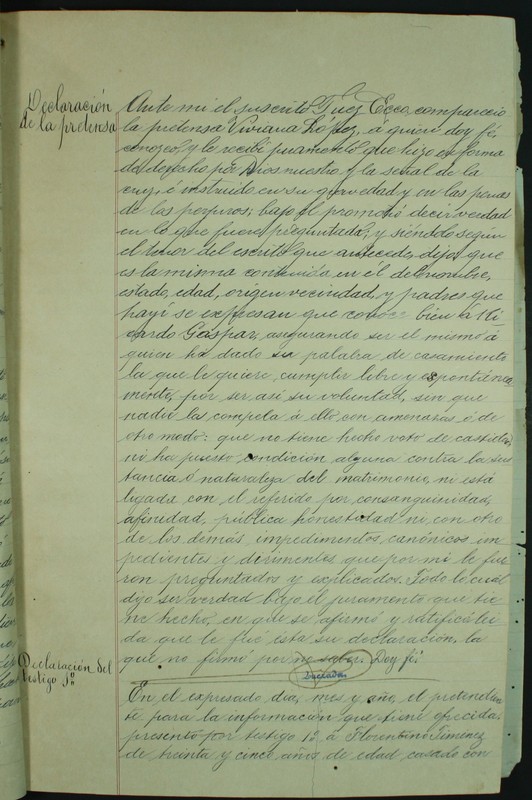 Declaración
de la pretensa
Ante mi el suscrito Juez Ecco. compareció
la pretensa Viviana López, á quien doy fé
conozco, y le recibí juramento que hizo en forma
de derecho por Dios nuestro y la señal de la
cruz, é instruida en su gravedad y en las penas
de los perjuros; bajo él promotió decir verdad
en lo que fuere preguntada; y siéndolo según
el tenor del escrito que antecede, dijo: que
es la misma contenida en él del nombre,
estado, edad, origen vecindad, y padres que
hayí se expresan que conoce bien á Ri
cardo Gaspar, asegurando ser el mismo á
quien ha dado su palabra de casamiento
la que le quiere cumplir libre y espontánea
mente, por ser asi su voluntad, sin que
nadie las compela á ello con amenazas ó de
otro modo: que no tiene hecho voto de castidad
ni ha puesto condición alguna contra la sus
tancia ó naturaleza del matrimonio, ni está
ligada con el referido por consanguinidad,
afinidad, pública honestidad ni con otro
de los demás impedimentos canónicos im
pedientes y dirimentes que por mi le fue
ron preguntados y explicados. Todo lo cuál
dijo ser verdad bajo el juramento que tie
ne hecho, en que se afirmó y ratificó lei
da que le fué esta su declaración, la
que no firmó por no saber. Doy fé.
Declaración del
testigo 1º
En el expresado dia, mes y año, el pretendien
te para la información que tiene ofrecida
presentó por testigo 1º á Florentino Jimenez
de treinta y cinco años de edad casado con